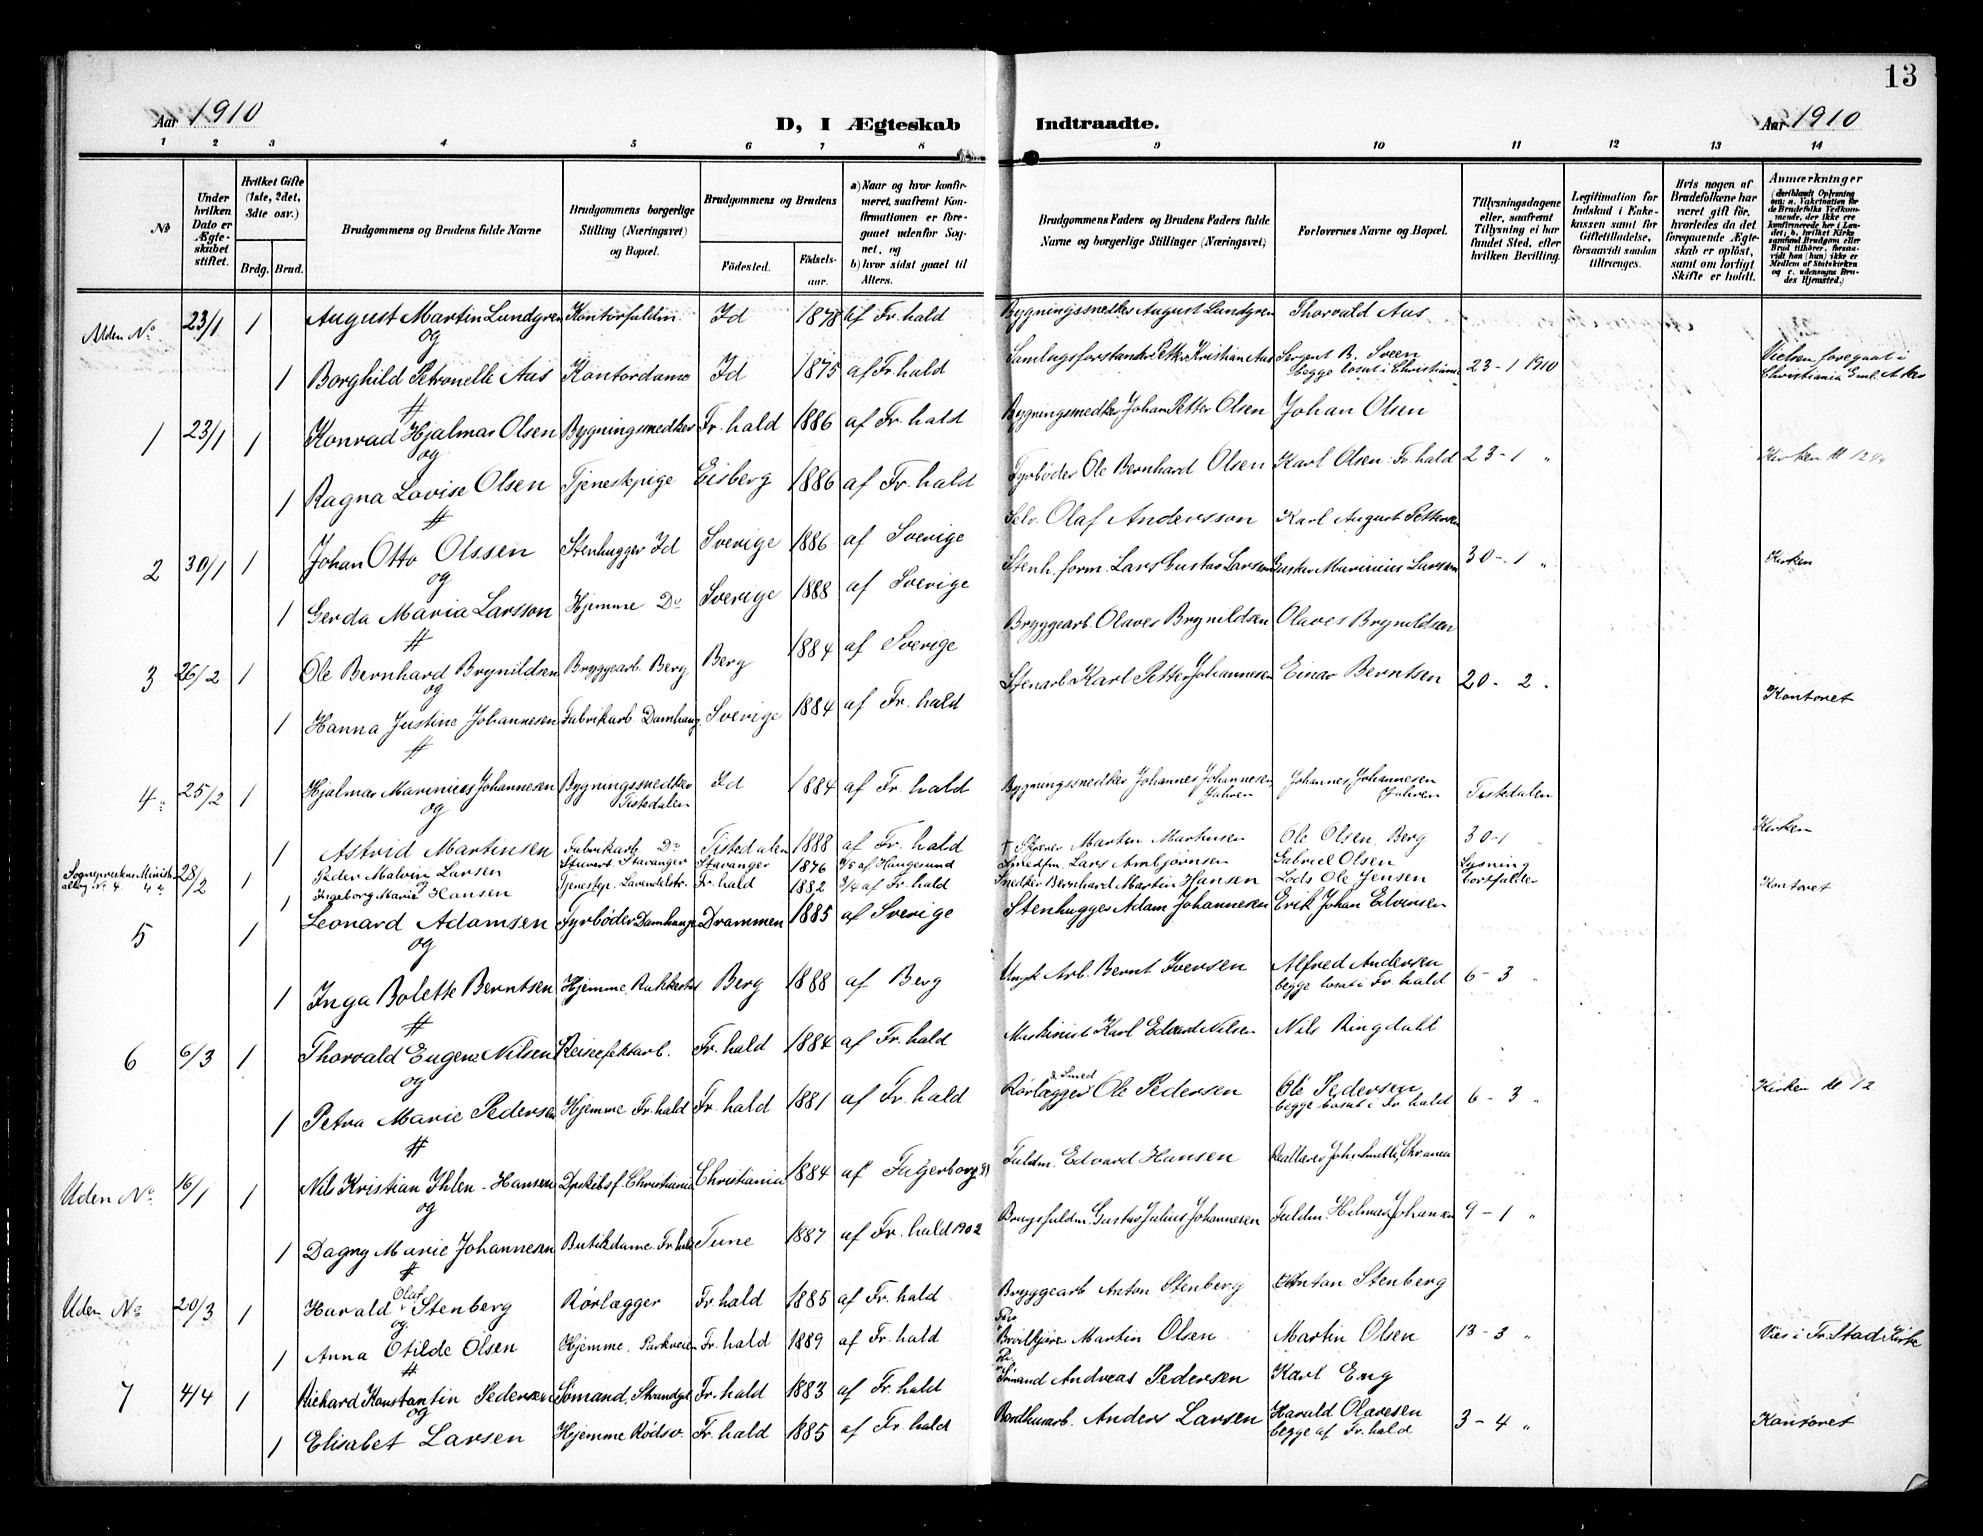 13
Aar 1910
D, I Ægteskab Indtraadte.
Aar 1910
1 2 3 4 5 6 7 8 9 10 11 12 13 14
No
Under hvilken Dato er Ægteskabet stiftet.
Hvilket Gifte (1ste, 2det, 3dte osv.)
Brdg. Brud.
Brudgommens og Brudens fulde Navne
Brudgommens borgerlige Stilling (Næringsvei) og Bopæl.
Brudgommens og Brudens
Fødested.
Fødselsaar.
a) Naar og hvor konfirmeret, saafremt Konfirmationen er foregaaet udenfor Sognet, og
b) hvor sidst gaaet til Alters.
Brudgommens Faders og Brudens Faders fulde Navne og borgerlige Stillinger (Næringsvei)
Forlovernes Navne og Bopæl.
Tillysningsdagene eller, saafremt Tillysning ei har fundet Sted, efter hvilken Bevilling.
Legitimation for Indskud i Enkekassen samt for Giftetilladelse, forsaavidt saadan tiltrænges.
Hvis nogen af Brudefolkene har været gift før, hvorledes da det foregaaende Ægteskab er opløst, samt om lovligt Skifte er holdt.
Anmærkninger
(deriblandt Oplysning om: a. Vakcination for de Brudefolks Vedkommende, der ikke ere konfirmerede her i Landet; b. hvilket Kirkesamfund Brudgom eller Brud tilhører, forsaavidt han (hun) ikke er Medlem af Statskirken og c. udensogns Brudes Hjemsted.)
Uden No 23/1 1 August Martin Lundgren Kontorfuldm. Id 1878 af Fr. hald Bygningssnedker August Lundgren Thorvald Aus
og
1 Borghild Petronelle Aus Kontordame Id 1875 af Fr. hald Samlagsforstander Petter Kristian Aus Sergent B. Sveen begge bosat i Christiania 23-1 1910 Vielsen foregaat i Christiania
1 23/1 1 Konrad Hjalmar Olsen Bygningsnedker Fr. hald 1886 af Fr. hald Bygningsnedker Johan Petter Olsen Johan Olsen
og
1 Ragna Lovise Olsen Tjenestpige Eisberg 1886 af Fr. hald Fyrbøder Ole Bernhard Olsen Karl Olsen Fr. hald 23-1 " Kirken
2 30/1 1 Johan Otto Olssen Stenhugger Id Sverige 1886 af Sverige Selv. Olaf Andersson Karl August Pettersen
og
1 Gerda Maria Larsson Hjemme Do Sverige 1888 af Sverige Stenh. form. Lars Gustav Larsson Gustav Marinius Larsson 30-1 " Kirken
3 26/2 1 Ole Bernhard Brynildsen Bryggearb. Berg Berg 1884 af Sverige Bryggearb. Olaves Brynildsen Olaves Brynildsen
og
1 Hanna Justine Johannesen Fabrikarb. Damhaug Sverige 1884 af Fr. hald Stenarb. Karl Petter Johannesen Einar Berntsen 20-2 " Kontoret
4 25/2 1 Hjalmar Marinius Johannesen Bygningssnedker Tistedalen Id 1884 af Fr. hald Bygningssnedker Johannes Johannesen Jahren Johannes Johannesen Jahren Tistedalen
og
1 Astrid Martinsen Fabrikarb. Do Tistedalen 1888 af Fr. hald Marten Martinsen Ole Olsen Berg 30-1 Kirken
Sognepresten Minist. albog No 4. 28/2 Peder Malvin Larsen Stuert. Stavanger Stavanger 1876 af Haugesund Lars Ambjørnsen Gabriel Olsen Lysning
1 Ingeborg Marie Hansen Tjenestep. Lavendelstr. Fr. hald 1882 af Fr. hald Snedker Bernhard Martin Hansen Lods Ole Jensen bortfalder Kontoret
5 1 Leonard Adamsen Fyrbøder Damhaug Drammen 1885 af Sverige Stenhugger Adam Johannesen Erik Johan Edvinsen
og
1 Inga Bolette Berntsen Hjemme, Berg 1888 af Berg Arb. Bernt Iversen Alfred Andersen begge bosat i Fr. hald 6-3 "
6 6/3 1 Thorvald Eugene Nilsen Reiseefektarb. Fr. hald 1884 af Fr. hald Maskinist Karl Edvard Nilsen Nils Ringdahl
og
1 Petra Marie Pedersen Hjemme Fr. hald Fr. hald 1881 af Fr. hald Rørlægger & Smed Ole Pedersen Ole Pedersen begge bosat i Fr. hald 6-3 " Kirken Kl 12
Uden No 16/1 1 Nils Kristian Ihlen-Hansen Dpskibsf. Christiania Christiania 1884 af Fagerborg Fuldm. Edvard Hansen
og
1 Dagny Marie Johannesen Butikdame Fr. hald Tune 1887 af Fr. hald 1902 Brugsfuldm. Gustav Julius Johannesen Fuldm. Hilmar Johansen 9-1 "
Uden No 20/3 1 Harald Olaf Stenberg Rørlægger Fr. hald 1885 af Fr. hald Bryggearb Anton Stenberg Anton Stenberg
og
1 Anna Otilde Olsen Hjemme, Parkveien Fr. hald 1889 af Fr. hald Brødkjører Martin Olsen Martin Olsen 13-3 " Vies i Fr. Stad Kirke
7 4/4 1 Richard Konstantin Pedersen Sømand, Strandgt Fr. hald 1883 af Fr. hald Sømand Andreas Pedersen Karl Eng
og
1 Elisabet Larsen Hjemme Rødsv. Fr. hald 1885 af Fr. hald Bordhusarb. Anders Larsen Harald Olavesen begge af Fr. hald 3-4 " Kontoret